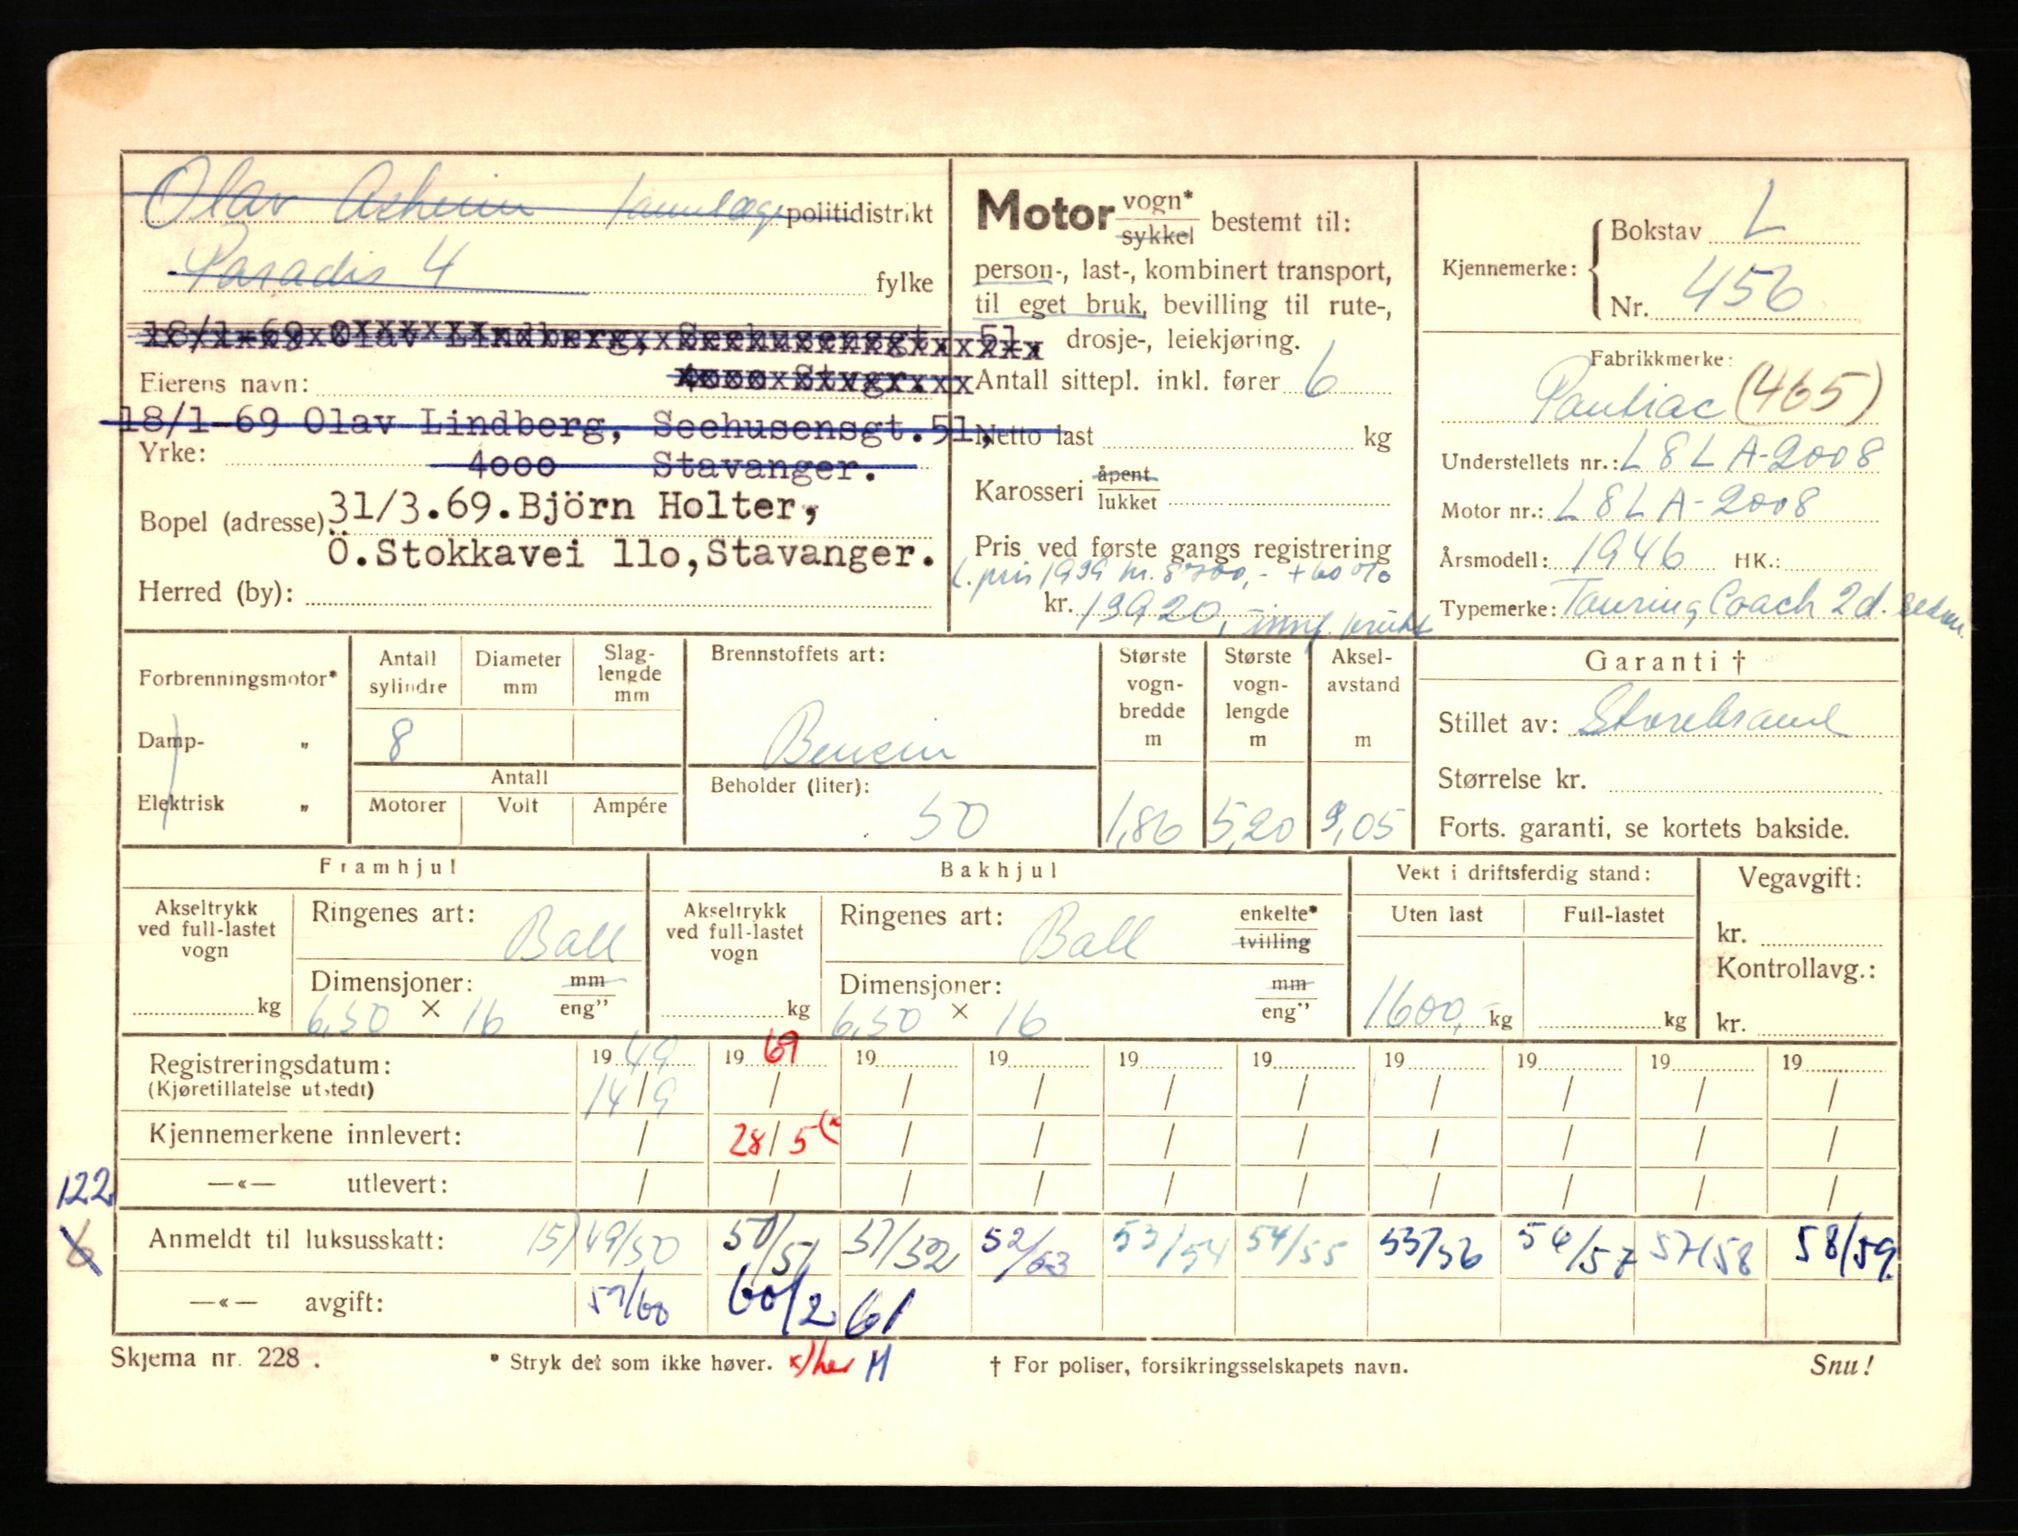 Olav Asheim tannlæge politidistrikt
Paradis 4 fylke
18/1-69 Olav Lindberg, Seehusensgt. 51,
4000 Stvgr.
Eierens navn:
18/1-69 Olav Lindberg, Seehusensgt.51,
Yrke: 4000 Stavanger.
Bopel (adresse) 31/3.69.Björn Holter,
Ö.Stokkavei 11o,Stavanger.
Herred (by):
Motor vogn* sykkel bestemt til:
person-, last-, kombinert transport,
til eget bruk, bevilling til rute-,
drosje-, leiekjøring.
Antall sittepl. inkl. fører 6
Netto last kg
Karosseri åpent lukket
Pris ved første gangs registrering
L. pris 1939 kr. 8700,- + 60 %
kr. 13920,-
Kjennemerke: Bokstav L
Nr. 456
Fabrikkmerke:
Pontiac (465)
Understellets nr.: L8LA-2008
Motor nr.: L8LA-2008
Årsmodell: 1946 HK.:
Typemerke: Touring Coach 2d. sedan.
Forbrenningsmotor*
Damp- „
Elektrisk „
Antall sylindre
8
Diameter mm
Slaglengde mm
Antall
Motorer Volt Ampére
Brennstoffets art:
Bensin
Beholder (liter):
50
Største vognbredde m
1,86
Største vognlengde m
5,20
Akselavstand m
3,05
Garanti †
Stillet av: Storebrand
Størrelse kr.
Forts. garanti, se kortets bakside.
Framhjul
Akseltrykk ved full-lastet vogn
kg
Ringenes art: Ball
Dimensjoner: mm
6,50 × 16 eng”
Bakhjul
Akseltrykk ved full-lastet vogn
kg
Ringenes art: Ball enkelte* tvilling
Dimensjoner: mm
6,50 × 16 eng”
Vekt i driftsferdig stand:
Uten last Full-lastet
1600,- kg kg
Vegavgift:
kr.
Kontrollavg.:
kr.
Registreringsdatum: 19 49 19 69 19 19 19 19 19 19 19 19
(Kjøretillatelse utstedt) 14/9 / / / / / / / / /
Kjennemerkene innlevert: / 28/5 (x / / / / / / / /
122 —«— utlevert: / / / / / / / / / /
6 Anmeldt til luksusskatt: 15) 49/50 50/51 51/52 52/53 53/54 54/55 55/56 56/57 57/58 58/59.
—«— avgift: 59/60 60/2 61
Skjema nr. 228. * Stryk det som ikke høver. x) her M † For poliser, forsikringsselskapets navn. Snu!